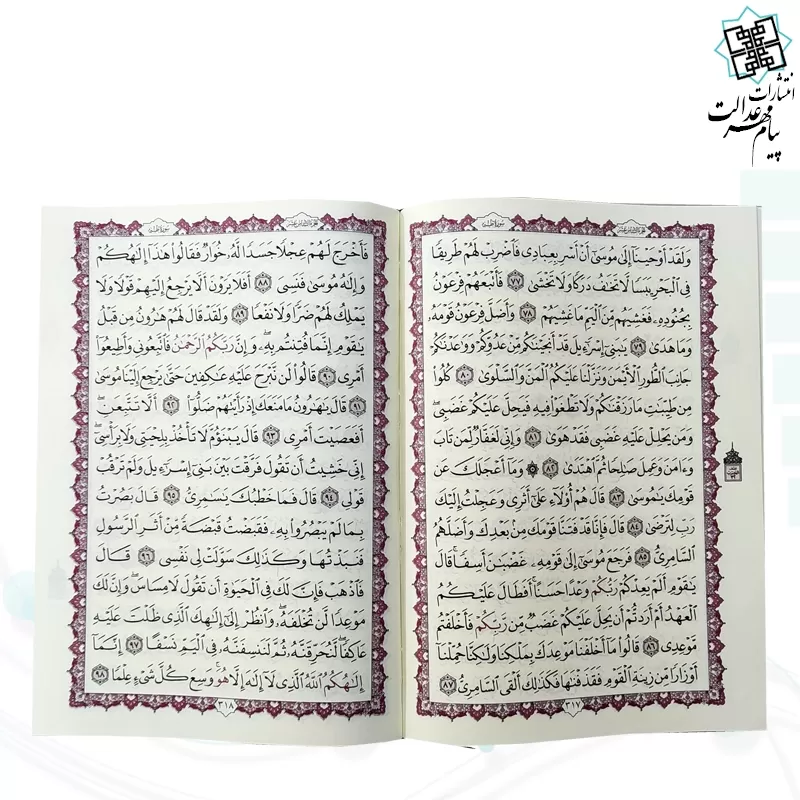 انتشارات
پیام مهر عدالت
وَلَقَدْ أَوْحَيْنَآ إِلَىٰ مُوسَىٰٓ أَنْ أَسْرِ بِعِبَادِى فَٱضْرِبْ لَهُمْ طَرِيقًا
فِى ٱلْبَحْرِ يَبَسًا لَّا تَخَٰفُ دَرَكًا وَلَا تَخْشَىٰ ۝٧٧ فَأَتْبَعَهُمْ فِرْعَوْنُ
بِجُنُودِهِۦ فَغَشِيَهُم مِّنَ ٱلْيَمِّ مَا غَشِيَهُمْ ۝٧٨ وَأَضَلَّ فِرْعَوْنُ قَوْمَهُۥ
وَمَا هَدَىٰ ۝٧٩ يَٰبَنِىٓ إِسْرَٰٓءِيلَ قَدْ أَنجَيْنَٰكُم مِّنْ عَدُوِّكُمْ وَوَٰعَدْنَٰكُمْ
جَانِبَ ٱلطُّورِ ٱلْأَيْمَنَ وَنَزَّلْنَا عَلَيْكُمُ ٱلْمَنَّ وَٱلسَّلْوَىٰ ۝٨٠ كُلُوا۟
مِن طَيِّبَٰتِ مَا رَزَقْنَٰكُمْ وَلَا تَطْغَوْا۟ فِيهِ فَيَحِلَّ عَلَيْكُمْ غَضَبِى ۖ
وَمَن يَحْلِلْ عَلَيْهِ غَضَبِى فَقَدْ هَوَىٰ ۝٨١ وَإِنِّى لَغَفَّارٌ لِّمَن تَابَ
وَءَامَنَ وَعَمِلَ صَٰلِحًا ثُمَّ ٱهْتَدَىٰ ۝٨٢ ۞ وَمَآ أَعْجَلَكَ عَن
قَوْمِكَ يَٰمُوسَىٰ ۝٨٣ قَالَ هُمْ أُو۟لَآءِ عَلَىٰٓ أَثَرِى وَعَجِلْتُ إِلَيْكَ
رَبِّ لِتَرْضَىٰ ۝٨٤ قَالَ فَإِنَّا قَدْ فَتَنَّا قَوْمَكَ مِنۢ بَعْدِكَ وَأَضَلَّهُمُ
ٱلسَّامِرِىُّ ۝٨٥ فَرَجَعَ مُوسَىٰٓ إِلَىٰ قَوْمِهِۦ غَضْبَٰنَ أَسِفًا ۚ قَالَ
يَٰقَوْمِ أَلَمْ يَعِدْكُمْ رَبُّكُمْ وَعْدًا حَسَنًا ۚ أَفَطَالَ عَلَيْكُمُ
ٱلْعَهْدُ أَمْ أَرَدتُّمْ أَن يَحِلَّ عَلَيْكُمْ غَضَبٌ مِّن رَّبِّكُمْ فَأَخْلَفْتُم
مَّوْعِدِى ۝٨٦ قَالُوا۟ مَآ أَخْلَفْنَا مَوْعِدَكَ بِمَلْكِنَا وَلَٰكِنَّا حُمِّلْنَآ
أَوْزَارًا مِّن زِينَةِ ٱلْقَوْمِ فَقَذَفْنَٰهَا فَكَذَٰلِكَ أَلْقَى ٱلسَّامِرِىُّ ۝٨٧
٣١٧
فَأَخْرَجَ لَهُمْ عِجْلًا جَسَدًا لَّهُۥ خُوَارٌ فَقَالُوا۟ هَٰذَآ إِلَٰهُكُمْ
وَإِلَٰهُ مُوسَىٰ فَنَسِىَ ۝٨٨ أَفَلَا يَرَوْنَ أَلَّا يَرْجِعُ إِلَيْهِمْ قَوْلًا وَلَا
يَمْلِكُ لَهُمْ ضَرًّا وَلَا نَفْعًا ۝٨٩ وَلَقَدْ قَالَ لَهُمْ هَٰرُونُ مِن قَبْلُ
يَٰقَوْمِ إِنَّمَا فُتِنتُم بِهِۦ ۖ وَإِنَّ رَبَّكُمُ ٱلرَّحْمَٰنُ فَٱتَّبِعُونِى وَأَطِيعُوٓا۟
أَمْرِى ۝٩٠ قَالُوا۟ لَن نَّبْرَحَ عَلَيْهِ عَٰكِفِينَ حَتَّىٰ يَرْجِعَ إِلَيْنَا مُوسَىٰ
۝٩١ قَالَ يَٰهَٰرُونُ مَا مَنَعَكَ إِذْ رَأَيْتَهُمْ ضَلُّوٓا۟ ۝٩٢ أَلَّا تَتَّبِعَنِ ۖ
أَفَعَصَيْتَ أَمْرِى ۝٩٣ قَالَ يَبْنَؤُمَّ لَا تَأْخُذْ بِلِحْيَتِى وَلَا بِرَأْسِىٓ ۖ
إِنِّى خَشِيتُ أَن تَقُولَ فَرَّقْتَ بَيْنَ بَنِىٓ إِسْرَٰٓءِيلَ وَلَمْ تَرْقُبْ
قَوْلِى ۝٩٤ قَالَ فَمَا خَطْبُكَ يَٰسَٰمِرِىُّ ۝٩٥ قَالَ بَصُرْتُ
بِمَا لَمْ يَبْصُرُوا۟ بِهِۦ فَقَبَضْتُ قَبْضَةً مِّنْ أَثَرِ ٱلرَّسُولِ
فَنَبَذْتُهَا وَكَذَٰلِكَ سَوَّلَتْ لِى نَفْسِى ۝٩٦ قَالَ
فَٱذْهَبْ فَإِنَّ لَكَ فِى ٱلْحَيَوٰةِ أَن تَقُولَ لَا مِسَاسَ ۖ وَإِنَّ لَكَ
مَوْعِدًا لَّن تُخْلَفَهُۥ ۖ وَٱنظُرْ إِلَىٰٓ إِلَٰهِكَ ٱلَّذِى ظَلْتَ عَلَيْهِ
عَاكِفًا ۖ لَّنُحَرِّقَنَّهُۥ ثُمَّ لَنَنسِفَنَّهُۥ فِى ٱلْيَمِّ نَسْفًا ۝٩٧ إِنَّمَآ
إِلَٰهُكُمُ ٱللَّهُ ٱلَّذِى لَآ إِلَٰهَ إِلَّا هُوَ ۚ وَسِعَ كُلَّ شَىْءٍ عِلْمًا ۝٩٨
٣١٨